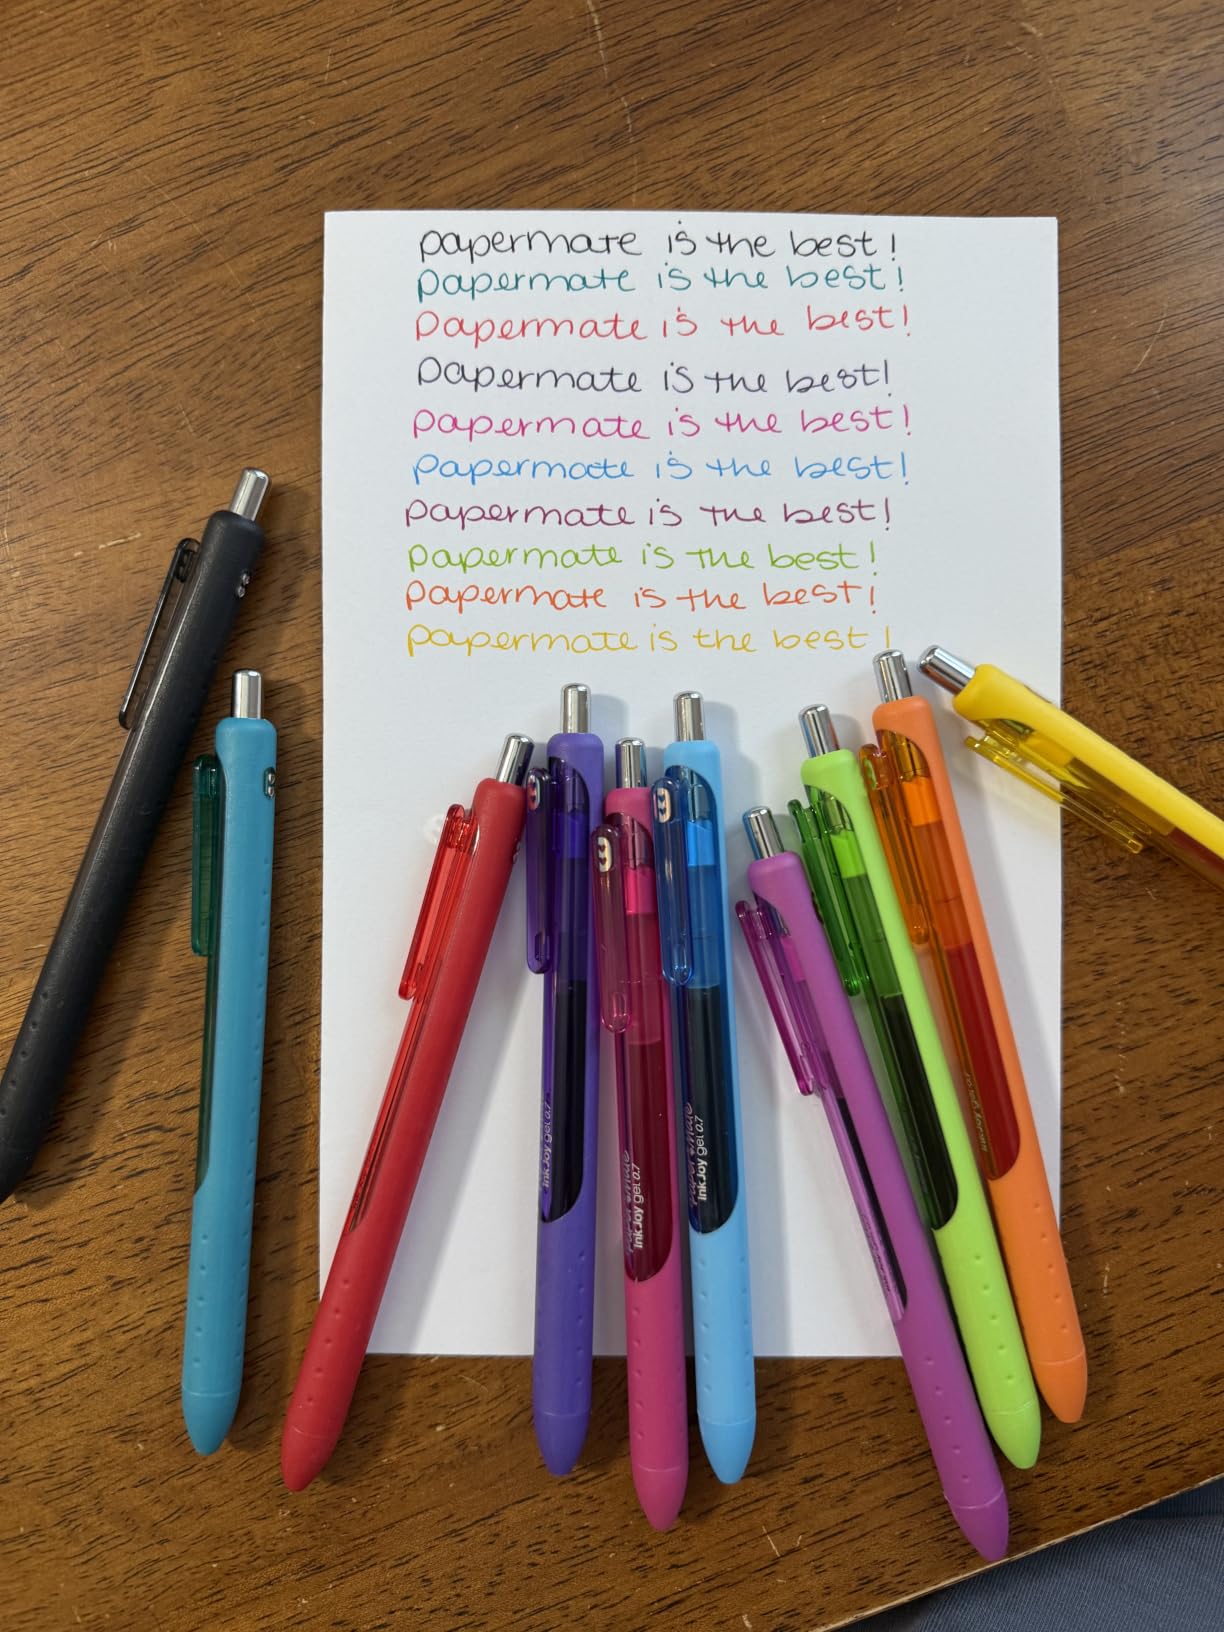 papermate is the best!
papermate is the best!
papermate is the best!
papermate is the best!
papermate is the best!
papermate is the best!
papermate is the best!
papermate is the best!
papermate is the best!
papermate is the best!
InkJoy gel 0.7
Paper Mate
InkJoy gel 0.7
Paper Mate
InkJoy gel 0.7
InkJoy gel 0.7